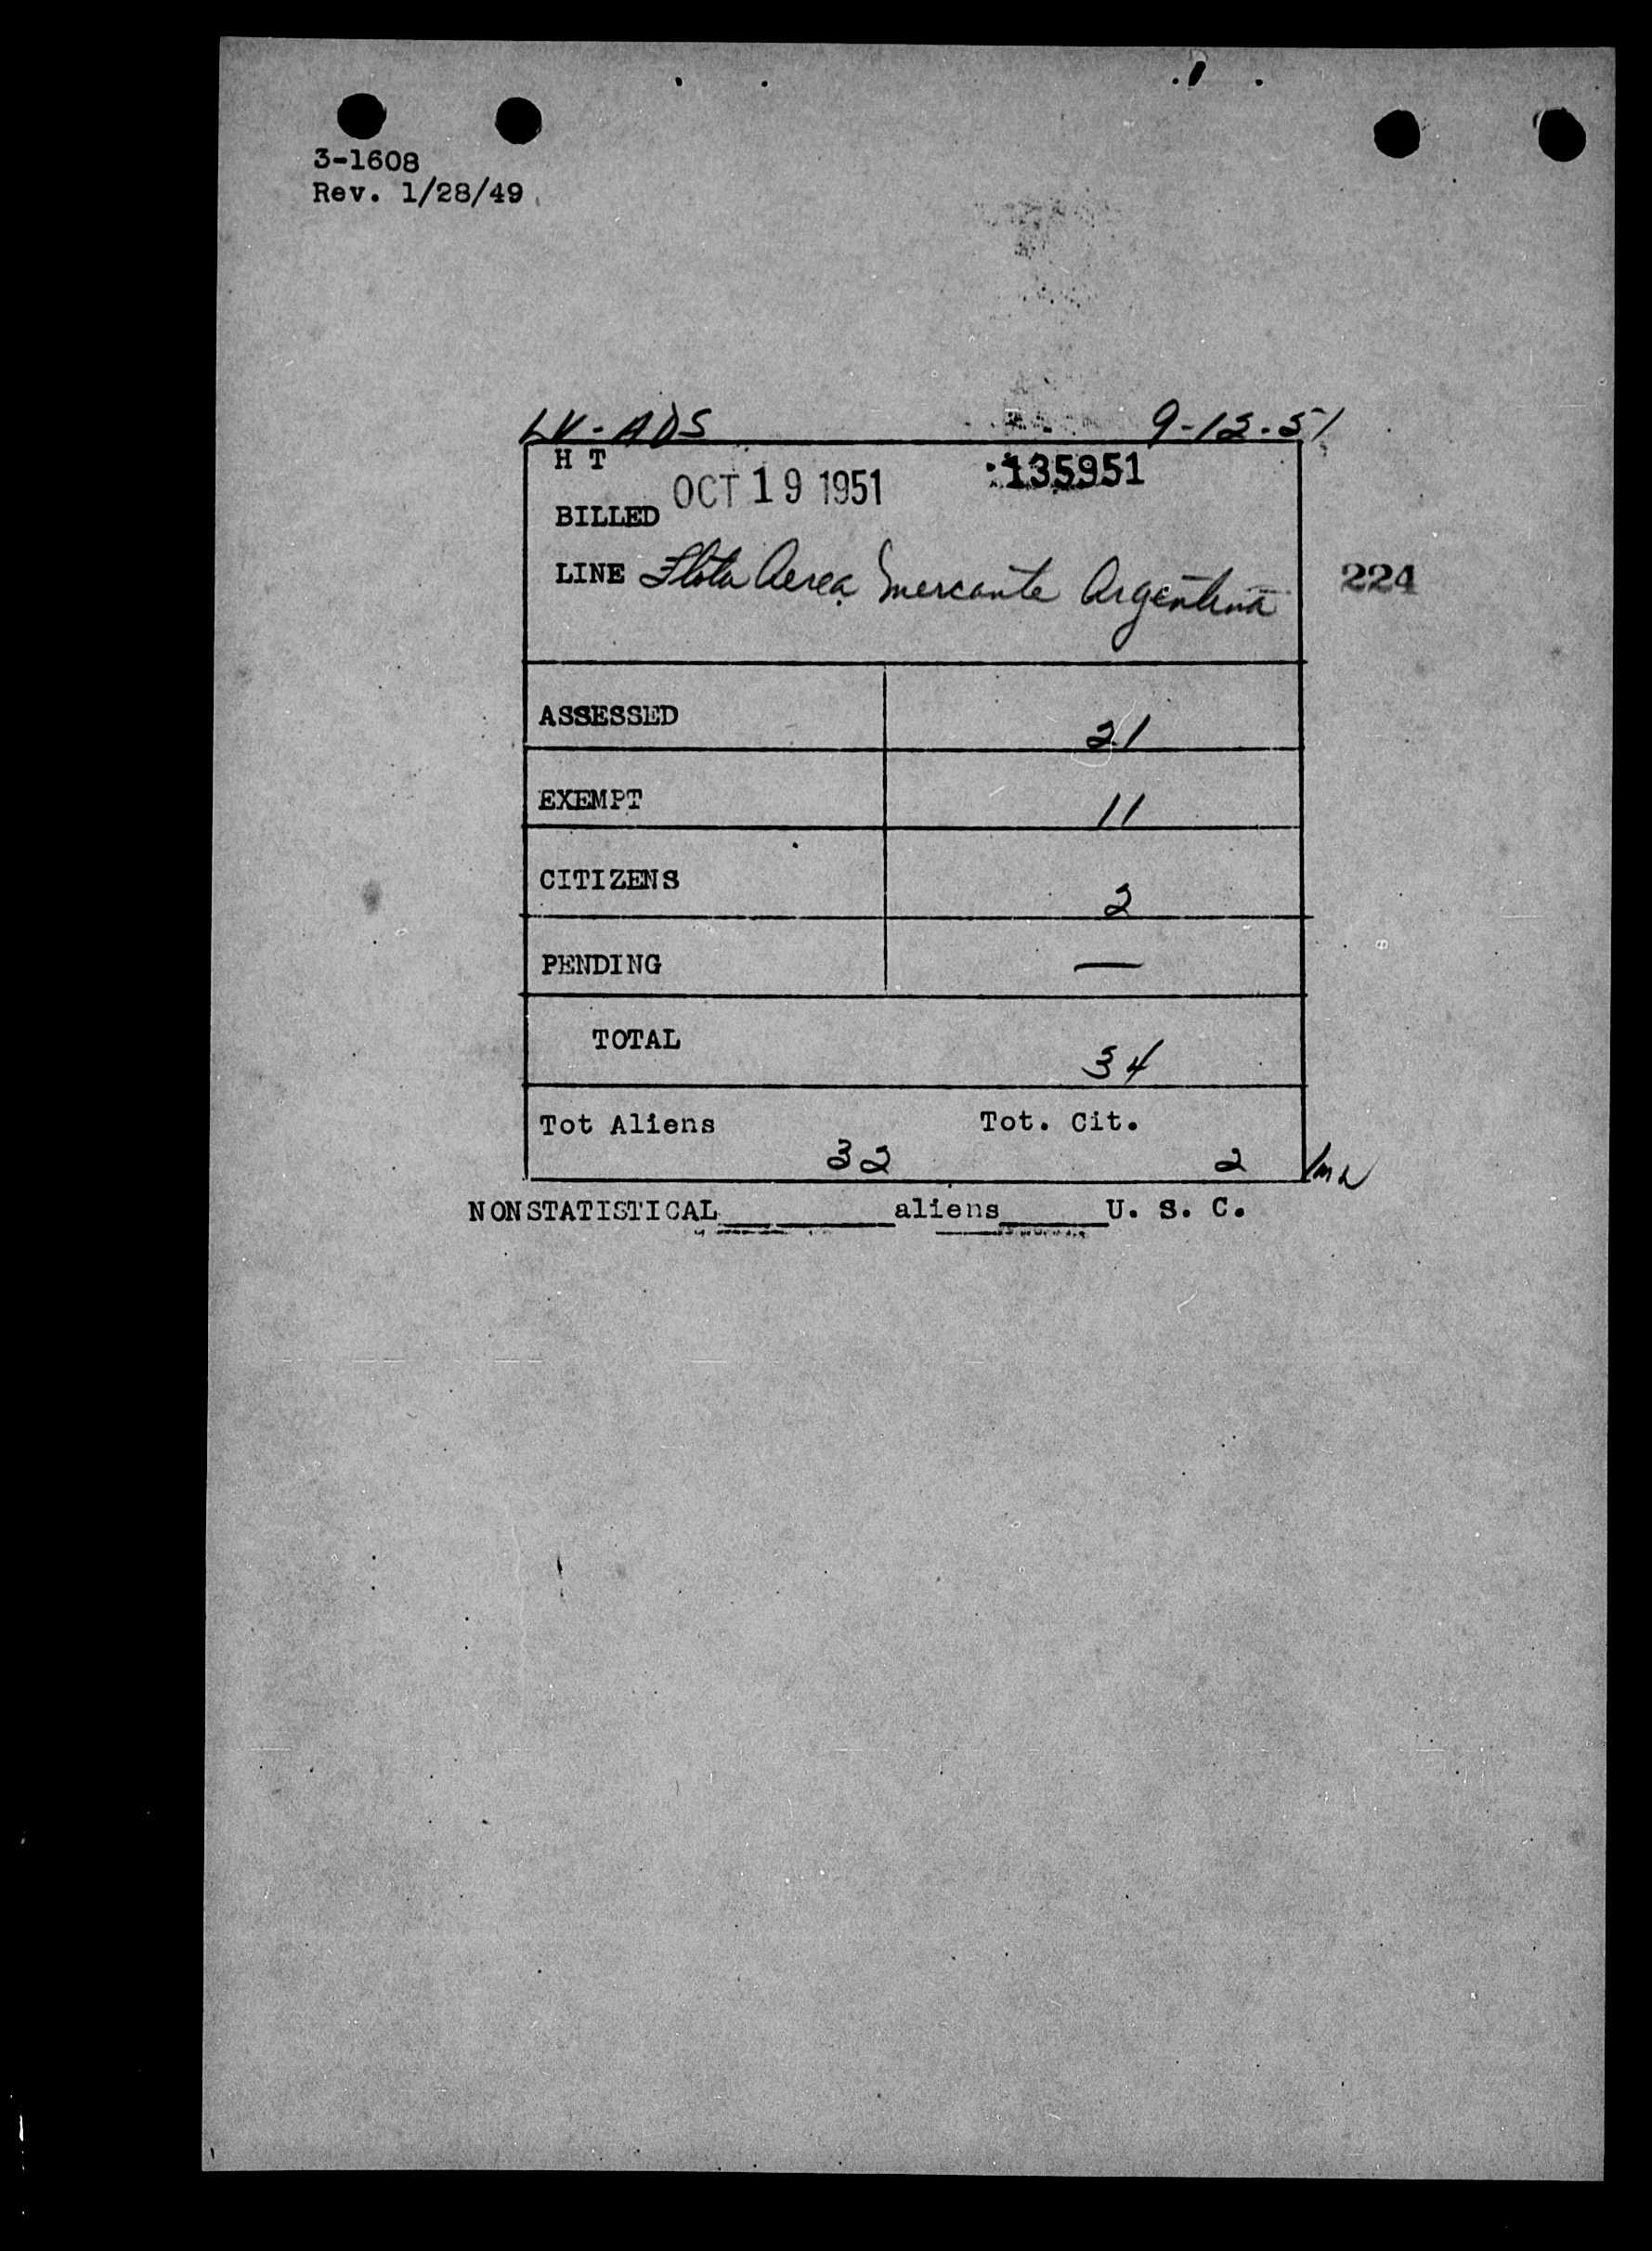 3-1608
Rev. 1/28/49
LV-ADS 9-12-51
H T
OCT 19 1951 135951
BILLED
LINE Flota Aerea Mercante Argentina 224
ASSESSED 21
EXEMPT 11
CITIZENS 2
PENDING —
TOTAL 34
Tot Aliens Tot. Cit.
32 2
NONSTATISTICAL__________aliens______U. S. C.